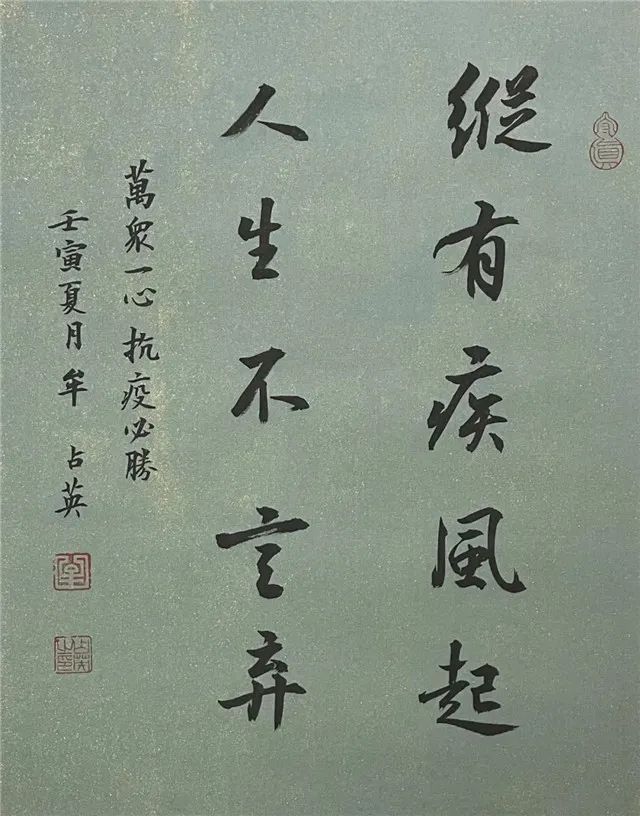 縱有疾風起
人生不言弃
萬衆一心抗疫必勝
壬寅夏月牟占英